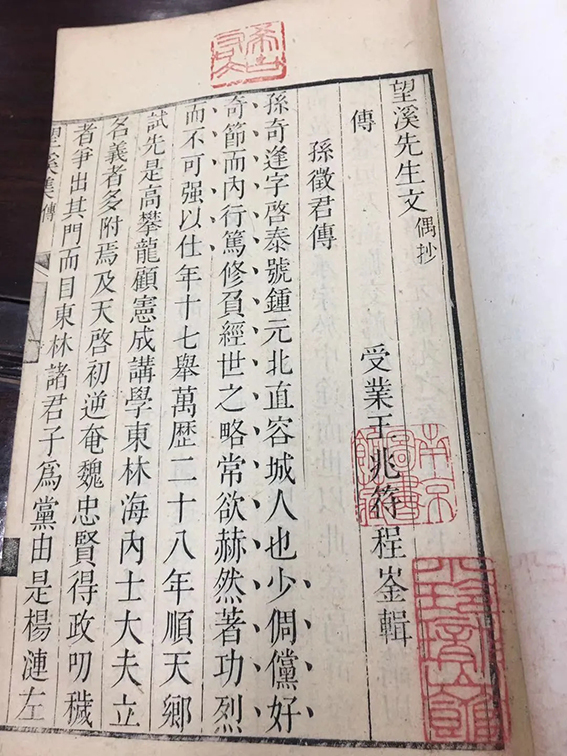 望溪先生文偶抄
受業王兆符程崟輯
傳
孫徵君傳
孫奇逢字啓泰號鍾元北直容城人也少倜儻好
奇節而内行篤修負經世之略常欲赫然著功烈
而不可强以仕年十七舉萬歷二十八年順天鄉
試先是高攀龍顧憲成講學東林海内士大夫立
名義者多附焉及天啓初逆奄魏忠賢得政叨穢
者爭出其門而目東林諸君子爲黨由是楊漣左
望溪集傳